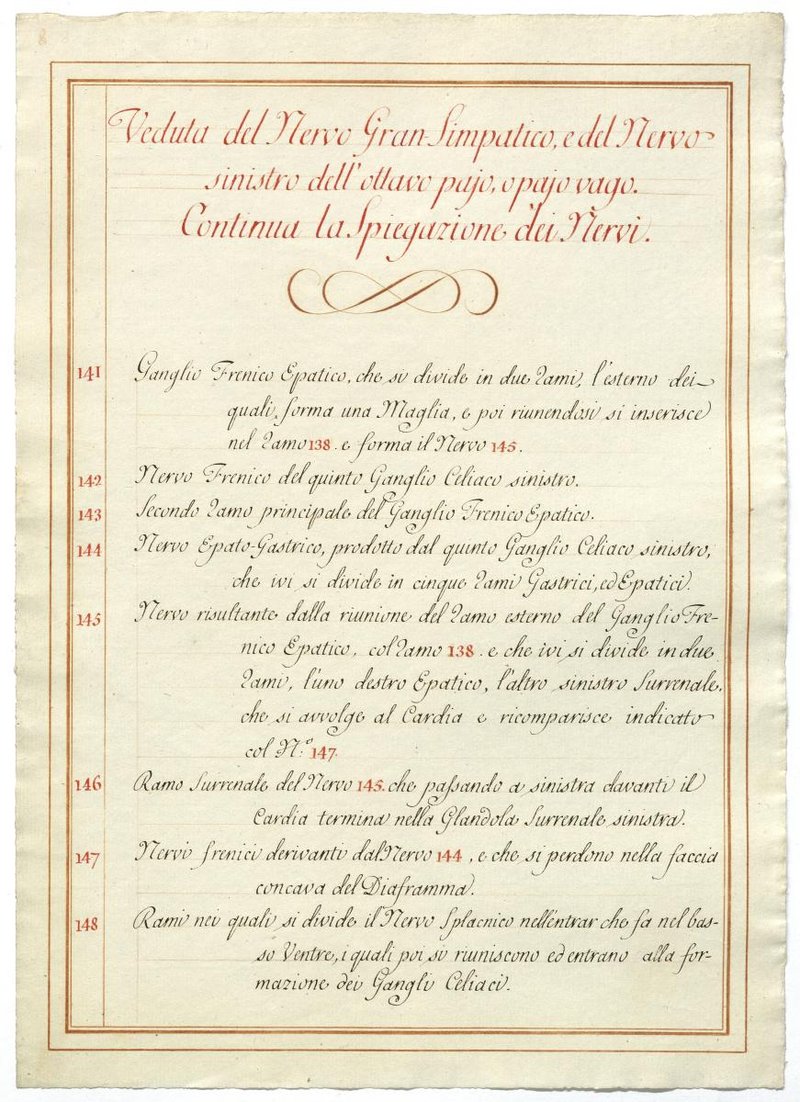 Veduta del Nervo Gran-Simpatico, e del Nervo
sinistro dell'ottavo pajo, o pajo vago.
Continua la Spiegazione dei Nervi.
141 Ganglio Frenico Epatico, che si divide in due Rami, l'esterno dei
quali forma una Maglia, e poi riunendosi si inserisce
nel Ramo 138. e forma il Nervo 145.
142 Nervo Frenico del quinto Ganglio Celiaco sinistro.
143 Secondo Ramo principale del Ganglio Frenico Epatico.
144 Nervo Epato-Gastrico, prodotto dal quinto Ganglio Celiaco sinistro,
che ivi si divide in cinque Rami Gastrici, ed Epatici.
145 Nervo risultante dalla riunione del Ramo esterno del Ganglio Fre-
nico Epatico, col Ramo 138. e che ivi si divide in due
Rami, l'uno destro Epatico, l'altro sinistro Surrenale,
che si avvolge al Cardia e ricomparisce indicato
col N.º 147.
146 Ramo Surrenale del Nervo 145. che passando a sinistra davanti il
Cardia termina nella Glandola Surrenale sinistra.
147 Nervi frenici derivanti dal Nervo 144, e che si perdono nella faccia
concava del Diaframma.
148 Rami nei quali si divide il Nervo Splacnico nell'entrar che fa nel bas-
so Ventre, i quali poi si riuniscono ed entrano alla for-
mazione dei Gangli Celiaci.